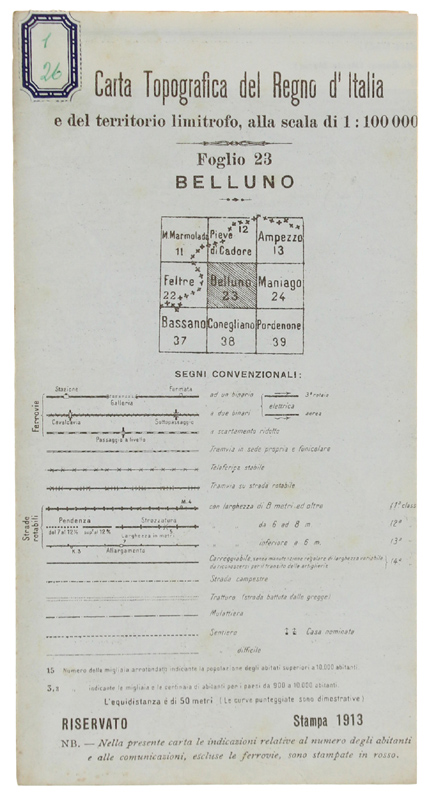 1
26
Carta Topografica del Regno d'Italia
e del territorio limitrofo, alla scala di 1:100000
Foglio 23
BELLUNO
M. Marmolada 11
Pieve di Cadore 12
Ampezzo 13
Feltre 22
Belluno 23
Maniago 24
Bassano 37
Conegliano 38
Pordenone 39
SEGNI CONVENZIONALI:
Ferrovie
Stazione
Galleria
Fermata
ad un binario
elettrica
3ª rotaia
aerea
Cavalcavia
Sottopassaggio
a due binari
Passaggio a livello
a scartamento ridotto
Tramvia in sede propria e funicolare
Teleferica stabile
Tramvia su strada rotabile
Strade rotabili
M.4
con larghezza di 8 metri ed oltre
Pendenza
Strozzatura
da 6 ad 8 m.
Larghezza in metri
inferiore a 6 m.
K.3
Allargamento
Carreggiabile,
Strada campestre
Trattura (strada battuta dalle gregge)
Mulattiera
Sentiero
Casa nominata
" difficile
15 Numero delle migliaia arrotondati indicante la popolazione degli abitati superiori a 10.000 abitanti.
5,3 " indicante le migliaia e le centinaia di abitanti per i paesi da 900 a 10.000 abitanti.
L'equidistanza è di 50 metri (Le curve punteggiate sono dimostrative)
RISERVATO
Stampa 1913
NB. — Nella presente carta le indicazioni relative al numero degli abitanti
e alle comunicazioni, escluse le ferrovie, sono stampate in rosso.